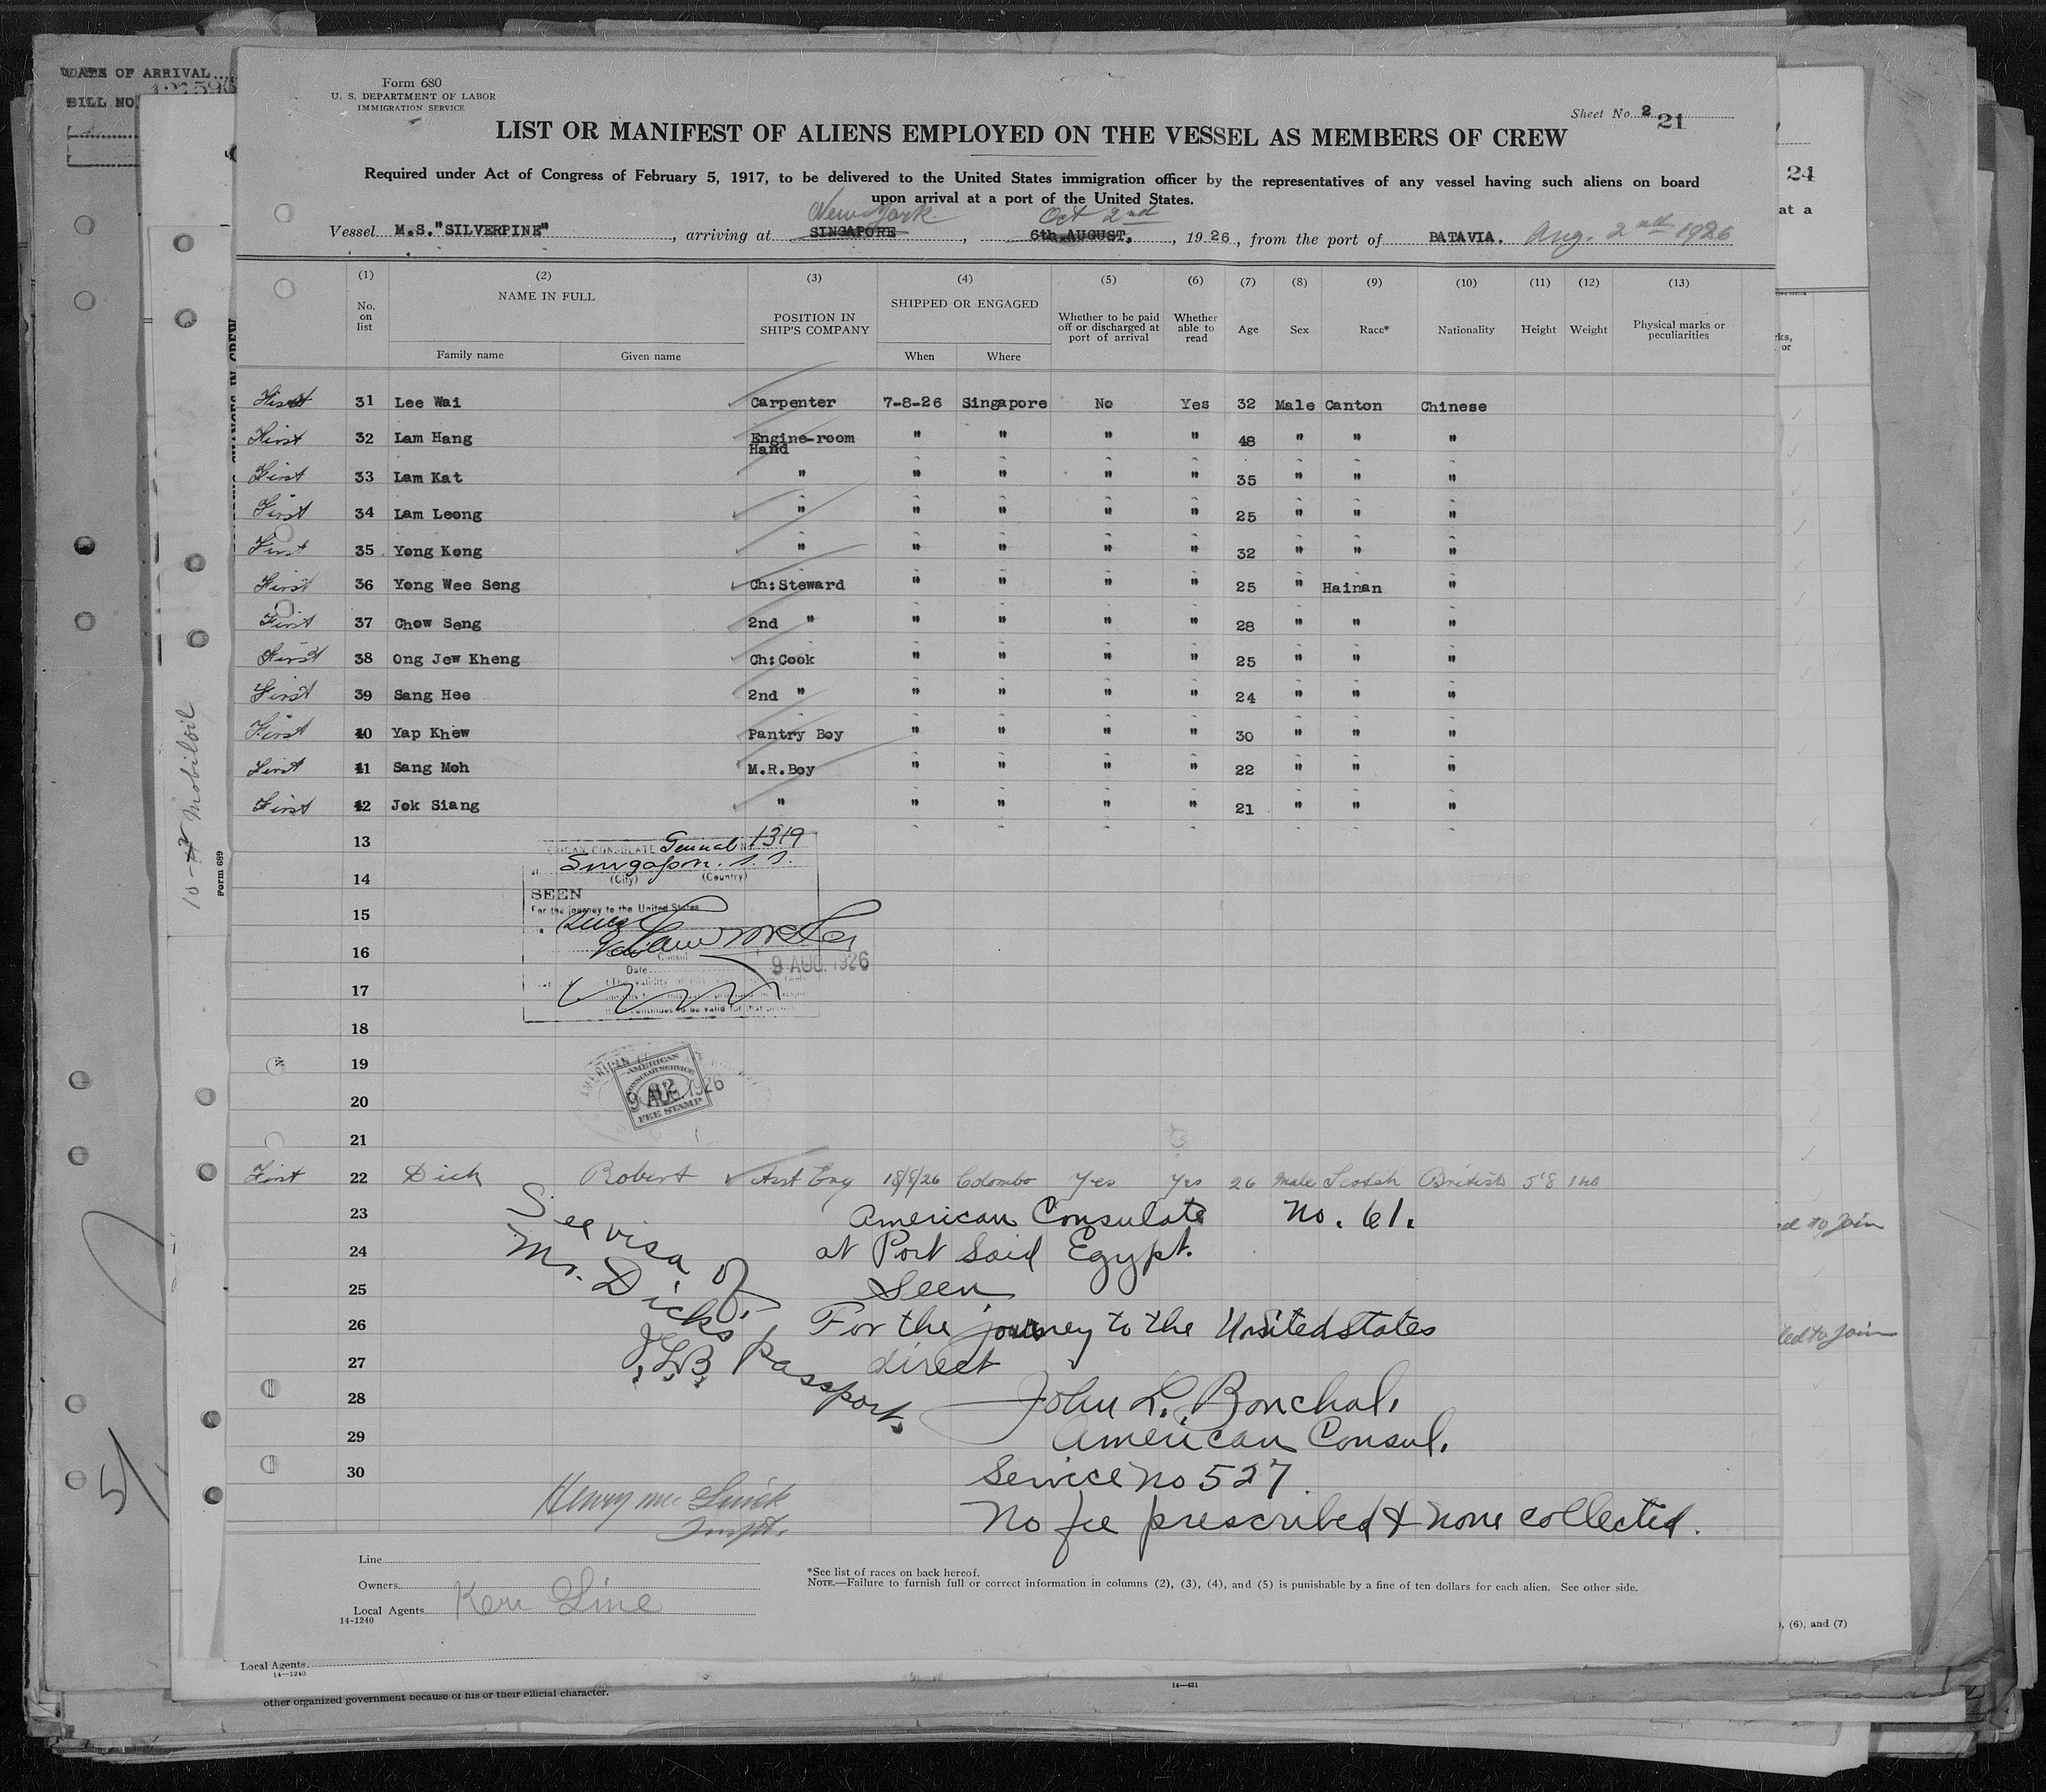 DATE OF ARRIVAL
BILL NO.
Form 680
U. S. DEPARTMENT OF LABOR
IMMIGRATION SERVICE
Sheet No. 2 21
LIST OR MANIFEST OF ALIENS EMPLOYED ON THE VESSEL AS MEMBERS OF CREW
Required under Act of Congress of February 5, 1917, to be delivered to the United States immigration officer by the representatives of any vessel having such aliens on board
upon arrival at a port of the United States.
New York Oct 2nd
Vessel M.S. "SILVERPINE", arriving at SINGAPORE, 6th.AUGUST., 1926, from the port of BATAVIA. Aug. 2nd 1926
(1) (2) (3) (4) (5) (6) (7) (8) (9) (10) (11) (12) (13)
No. on list NAME IN FULL POSITION IN SHIP'S COMPANY SHIPPED OR ENGAGED Whether to be paid off or discharged at port of arrival Whether able to read Age Sex Race* Nationality Height Weight Physical marks or peculiarities
Family name Given name When Where
First 31 Lee Wai Carpenter 7-8-26 Singapore No Yes 32 Male Canton Chinese
First 32 Lam Hang Engine-room Hand " " " " 48 " " "
First 33 Lam Kat " " " " " 35 " " "
First 34 Lam Leong " " " " " 25 " " "
First 35 Yong Kong " " " " " 32 " " "
First 36 Yong Wee Seng Ch:Steward " " " " 25 " Hainan "
First 37 Chow Seng 2nd " " " " " 28 " " "
First 38 Ong Jew Kheng Ch:Cook " " " " 25 " " "
First 39 Sang Hee 2nd " " " " " 24 " " "
First 40 Yap Khew Pantry Boy " " " " 30 " " "
First 41 Sang Moh M.R.Boy " " " " 22 " " "
First 42 Jok Siang " " " " " 21 " " "
13
AMERICAN CONSULATE General No. 1319
at Singapore. S. S.
14
(City) (Country)
SEEN
15
For the journey to the United States
16
Consul
Date 9 AUG. 1926
17
18
19
AMERICAN
CONSULAR SERVICE
9 AUG. 1926
FEE STAMP
20
21
First 22 Dick Robert Asst Eng 18/8/26 Colombo Yes Yes 26 Male Scotch British 5'8 140
23 American Consulate No. 61.
24 at Port Said Egypt.
25 Seen
26 For the journey to the United States
27 direct
See visa of
Mr. Dick's
Passport.
J.L.B.
28 John L. Bouchal,
29 American Consul.
30 Service No 527.
No fee prescribed & none collected.
Henry Mc
Inspt.
Line
Owners
Local Agents Kerr Line
14-1240
*See list of races on back hereof.
NOTE.—Failure to furnish full or correct information in columns (2), (3), (4), and (5) is punishable by a fine of ten dollars for each alien. See other side.
Local Agents
14—1240
other organized government because of his or their official character.
14—431
10- Mobiloil
Form 689
24
at a
to Join
to Join
, (6), and (7)